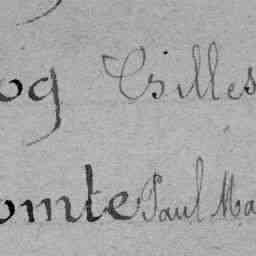 og Gilles
omte Paul Ma